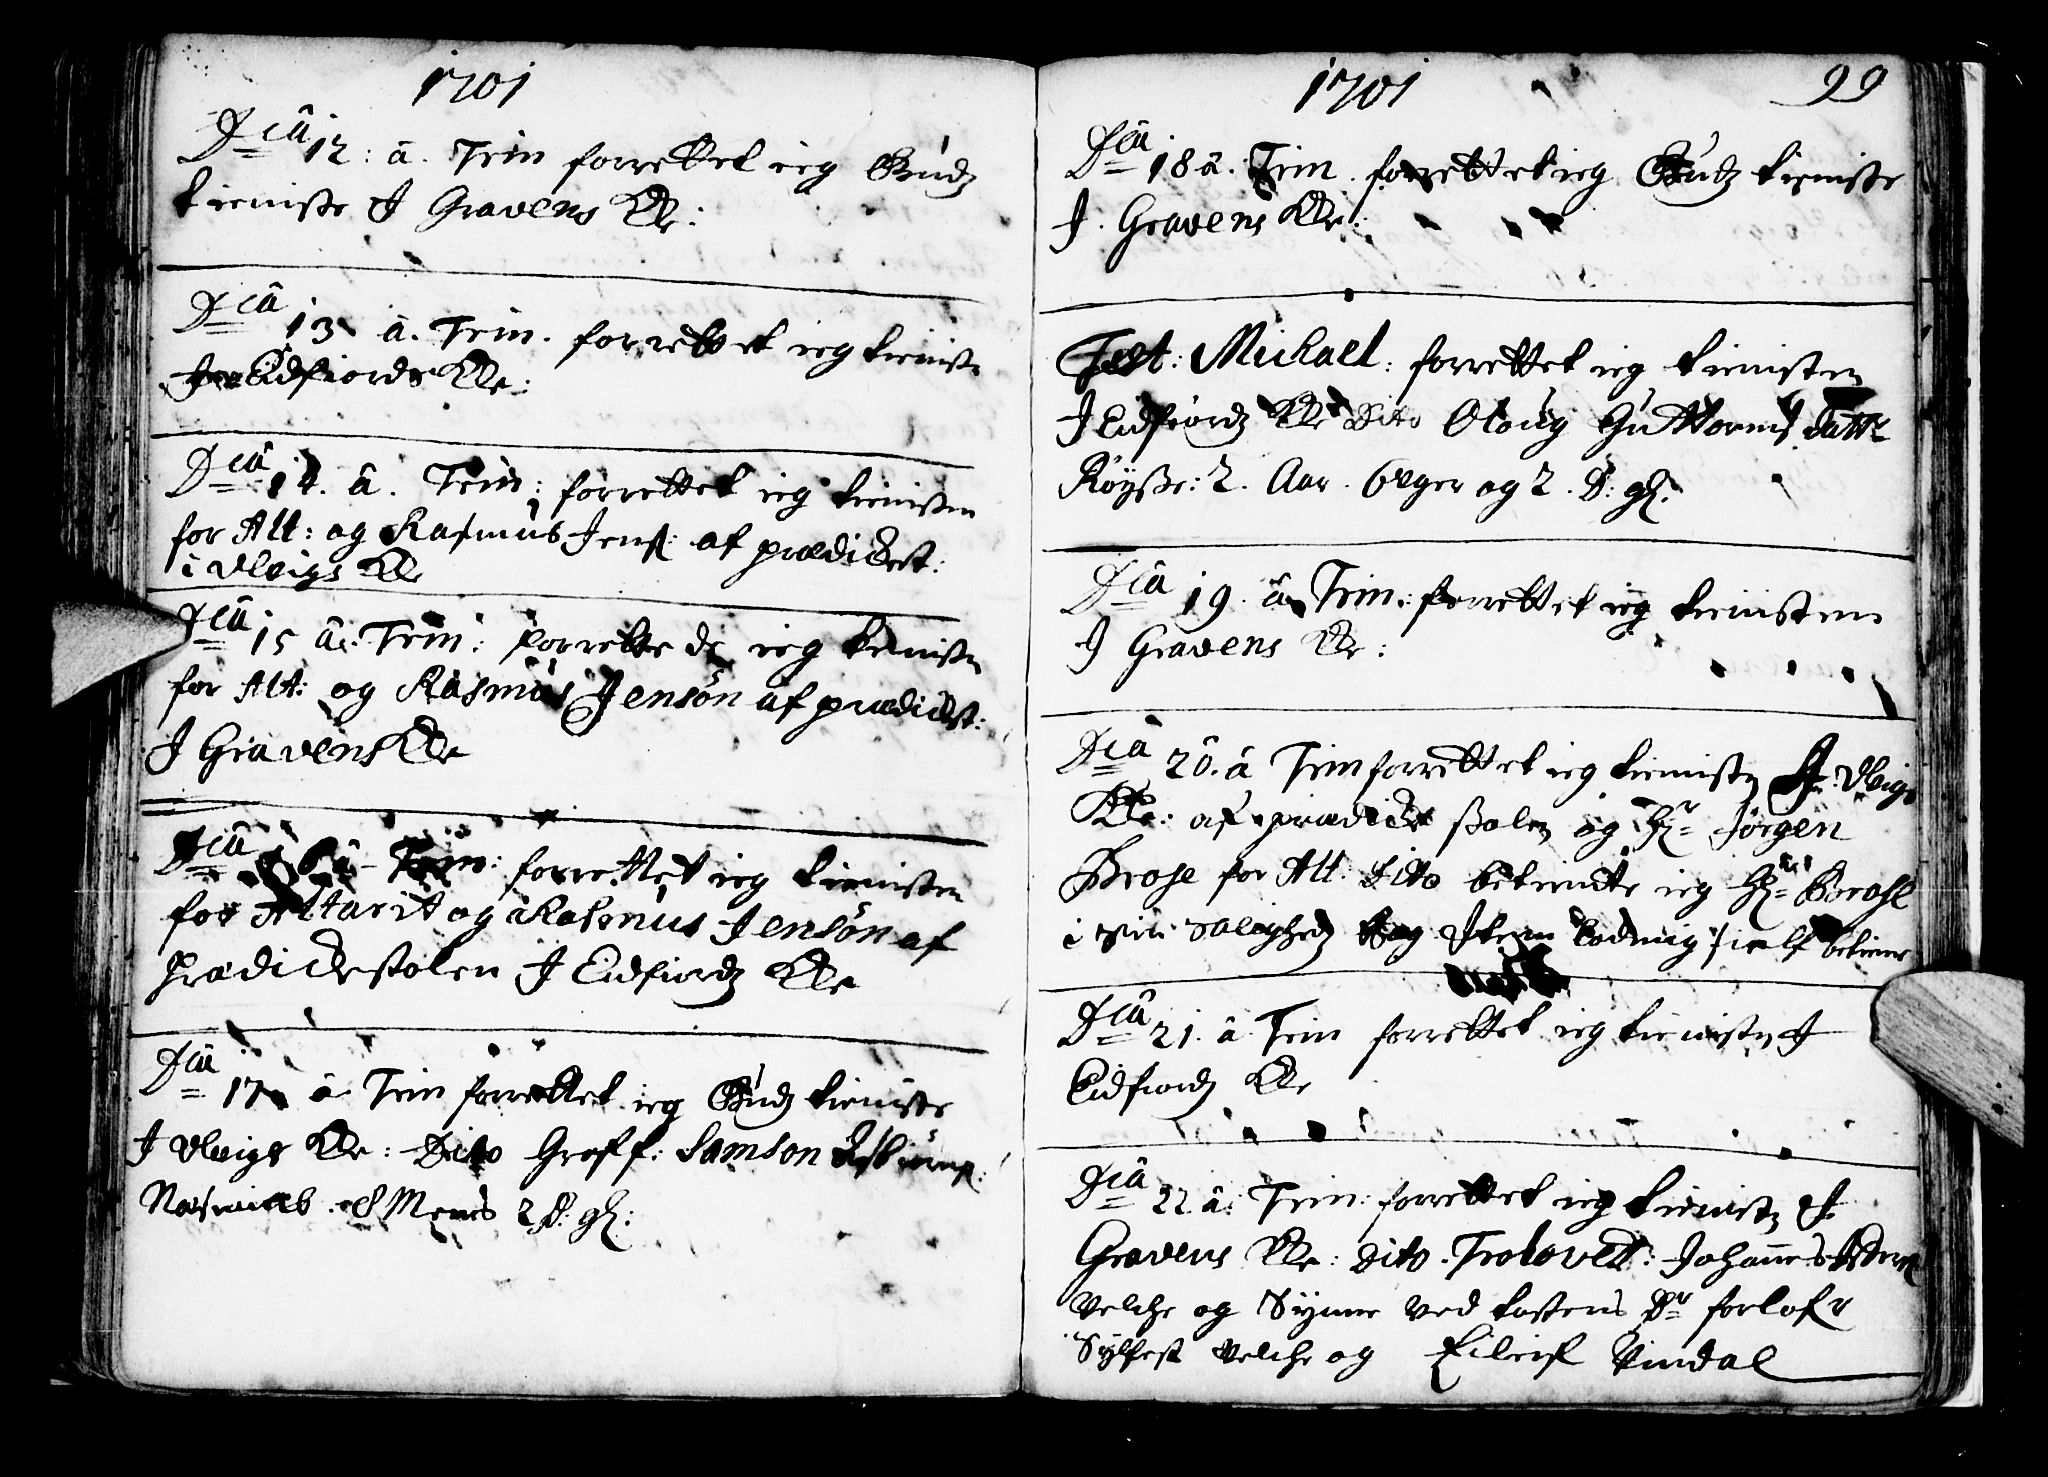 1701
Dcâ 12: â. Trin forrettet ieg Gudz
tieniste J Gravens Kke:
Dcâ 13 â. Trin. forrettet ieg tieniste
J Eidfiords Kke:
Dcâ 14. â. Trin: forrettet ieg tienisten
for Alt: og Rasmus Jens: af prædickest:
i Vlvigs Kke
Dcâ 15 â. Trin: forrettede ieg tienisten
for Alt: og Rasmus Jensön af prædickst:
J Gravens Kke
Dcâ 16 â Trin: forrettet ieg tienisten
for Altarit og Rasmus Jensön af
Prædickestolen J Eidfiordz Kke
Dcâ 17 â Trin forrettet ieg Gudz tieniste
J Vlvigs Kke: Dito Graff: Samson
8 Mens 2 D: gl:
1701
99
Dcâ 18 â: Trin. forrettet ieg Gudz tieniste
J. Gravens Kke:
Fest: Michael: forrettet ieg tienisten
J Eidfiordz Kke Dito Oloug Guttorms datt:
Röysse: 2. Aar. 6 Vger og 2. D: gl.
Dcâ 19. â Trin: forrettet ieg tienisten
J Gravens Kke:
Dcâ 20. â Trin forrettet ieg tienisten J: Vlvigs
Kke: af prædicke stolen og Hr= Jörgen
Brose for Alt: Dito betiendte ieg Hr= Brose
i sin Salighedz sielf betiene
Dcâ 21. â Trin forrettet ieg tienisten J
Eidfiordz Kke
Dcâ 22. â: Trin: forrettet ieg tienisten J
Gravens Kke: Dito. Trolovett: Johannes
Velche og Synne Ved forlofr
Sylfest Velche og Eilerf Vindal